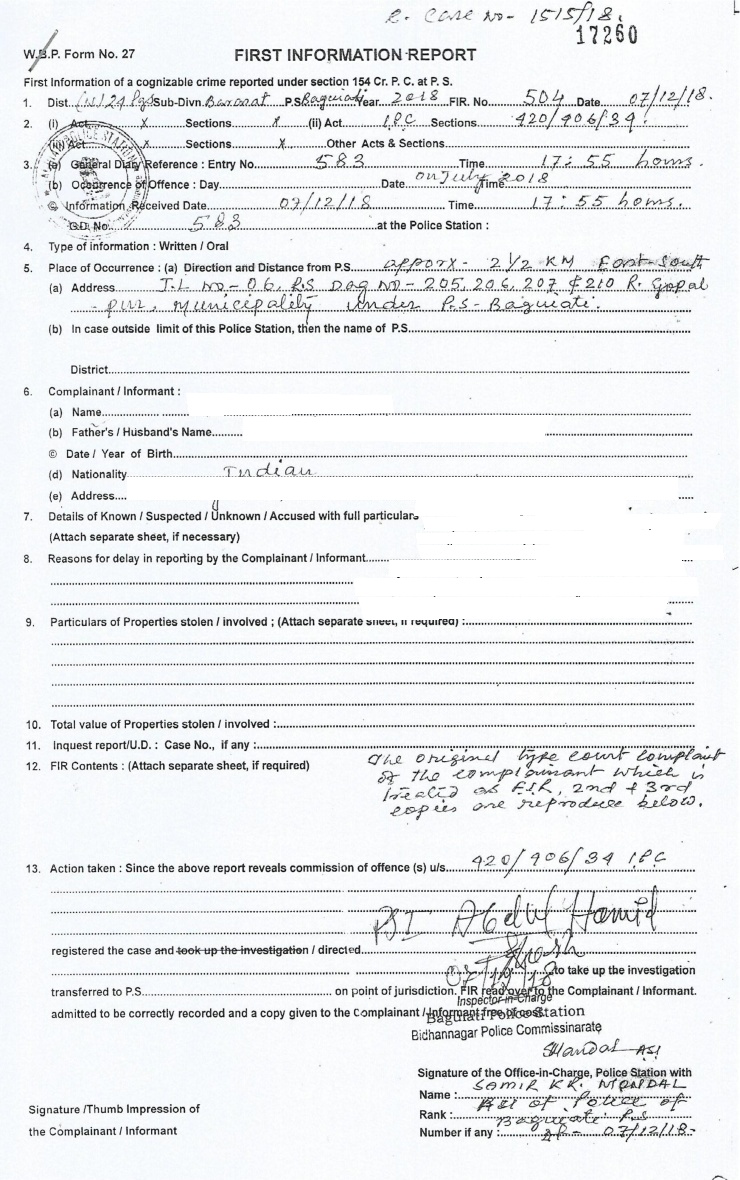 R. Case No- 1515/18.
17260
W.B.P. Form No. 27
FIRST INFORMATION REPORT
First Information of a cognizable crime reported under section 154 Cr. P. C. at P. S.
1. Dist. (N) 24 Pgs Sub-Divn. Barasat P.S Baguiati Year 2018 FIR. No 504 Date 07/12/18.
2. (i) Act X Sections X (ii) Act IPC Sections 420/406/34.
(iii) Act X Sections X Other Acts & Sections
3. (a) General Diary Reference : Entry No. 583 Time 17:55 hours.
(b) Occurrence of Offence : Day Date on July 2018 Time
© Information Received Date 07/12/18 Time 17:55 hours.
G.D. No. 583 at the Police Station :
4. Type of information : Written / Oral
5. Place of Occurrence : (a) Direction and Distance from P.S. apporx- 2 1/2 KM East-South
(a) Address J.L No-06, R.S Dag No-205, 206, 207 & 210 R. Gopal
-pur, Municipality Under P.S-Baguiati.
(b) In case outside limit of this Police Station, then the name of P.S.
District
6. Complainant / Informant :
(a) Name
(b) Father's / Husband's Name
© Date / Year of Birth
(d) Nationality Indian
(e) Address
7. Details of Known / Suspected / Unknown / Accused with full particulars
(Attach separate sheet, if necessary)
8. Reasons for delay in reporting by the Complainant / Informant
9. Particulars of Properties stolen / involved ; (Attach separate sheet, if required) :
10. Total value of Properties stolen / involved :
11. Inquest report/U.D. : Case No., if any :
12. FIR Contents : (Attach separate sheet, if required)
The original type court complaint
of the complainant which is
treated as FIR, 2nd + 3rd
copies are reproduce below.
13. Action taken : Since the above report reveals commission of offence (s) u/s. 420/406/34 IPC
PSI Abdul Hamid
registered the case and took up the investigation / directed
07/12/18 to take up the investigation
transferred to P.S. on point of jurisdiction. FIR read over to the Complainant / Informant.
admitted to be correctly recorded and a copy given to the Complainant / Informant free of cost.
Inspector-in-Charge
Baguiati Police Station
Bidhannagar Police Commissinarate
SMandal ASI
Signature of the Office-in-Charge, Police Station with
Name : SAMIR KR. MONDAL
Rank : ASI of Police of
Baguiati P.S
Number if any : 07/12/18-
Signature /Thumb Impression of
the Complainant / Informant